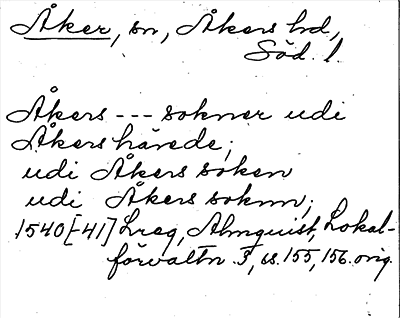 Åker, sn, Åkers hd,
Söd. l.
Åkers --- sokner udi
Åkers härede;
udi Åkers soken
udi Åkers soknn;
1540[-41] Lreg, Almquist, Lokal-
förvaltn 3, ss. 155, 156. orig.